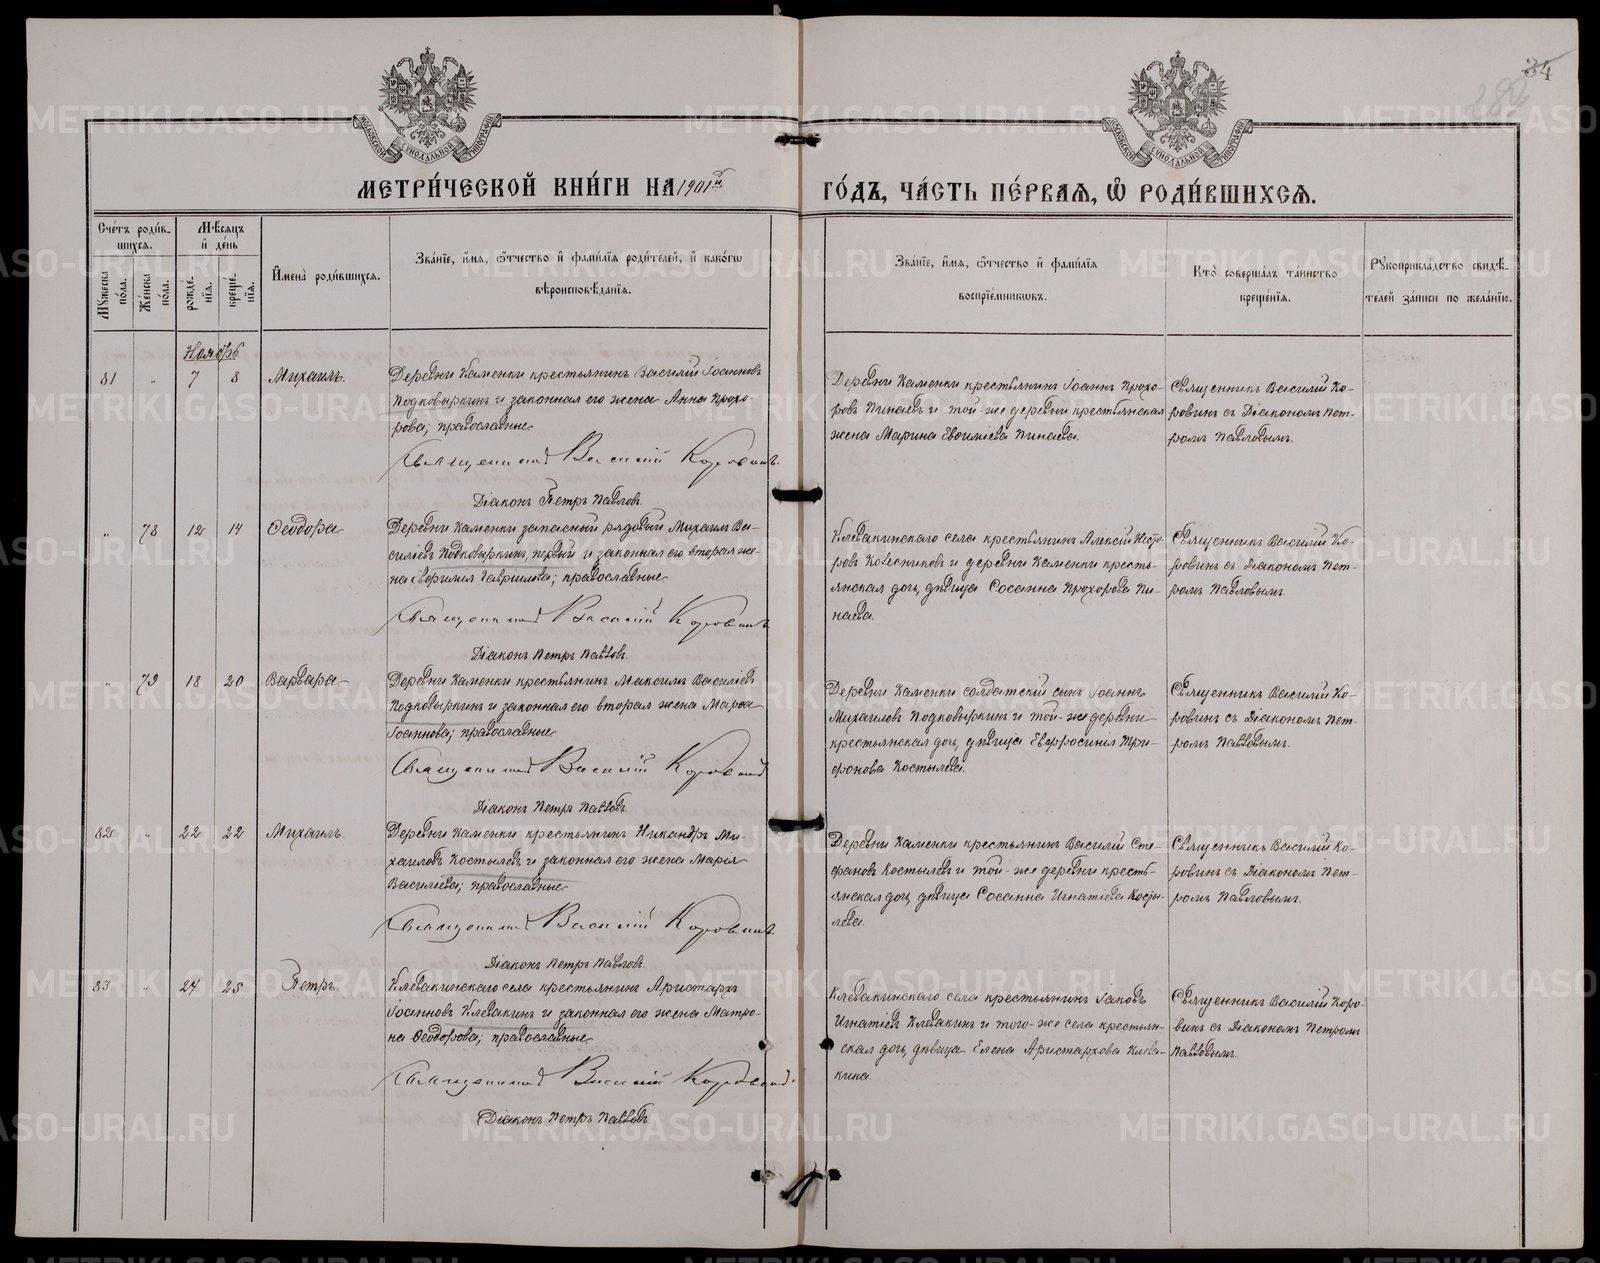 34
МЕТРИ́ЧЕСКОЙ КНИ́ГИ НА 1901й ГО́ДЪ, ЧА́СТЬ ПЕ́РВАЯ, Ѡ РОДИ́ВШИХСЯ.
Сче́тъ роди́в-
шихся.
Мѣ́сяцъ
и̑ де́нь
Мꙋжеска
по́ла.
Же́нска
по́ла.
рожде́-
нїя.
креще́-
нїя.
И̑мена̀ роди́вшихся.
Зва́нїе, и̑́мя, ѻ̑́тчество и̑ фами́лїя роди́телей, и̑ како́гѡ
вѣроисповѣ́данїя.
Зва́нїе, и̑́мя, ѻ̑́тчество и̑ фами́лїя
воспрїе́мникѡвъ.
Кто̀ соверша́лъ та́инство
креще́нїя.
Рꙋкоприкла́дство свидѣ́-
телей за́писи по жела́нїю.
Ноябрь
81 " 7 8 Михаилъ.
Деревни Каменки крестьянинъ Василій Іоанновъ
Подковыркинъ и законная его жена Анна Прохо-
рова; православные
Священникъ Василій Коровинъ.
Діаконъ Петръ Павловъ.
Деревни Каменки крестьянинъ Іоаннъ Прохо-
ровъ Пинаевъ и той-же деревни крестьянская
жена Марина Евѳиміева Пинаева.
Священникъ Василій Ко-
ровинъ съ Діакономъ Пет-
ромъ Павловымъ.
" 78 12 14 Ѳеодора
Деревни Каменки запасный рядовый Михаилъ Ва-
силіевъ Подковыркинъ, первый и законная его вторая же-
на Гавриилова; православные
Священникъ Василій Коровинъ
Діаконъ Петръ Павловъ.
Клевакинскаго села крестьянинъ Алексій Несто-
ровъ Колесниковъ и деревни Каменки кресть-
янская дочь, дѣвица Сосанна Прохорова Пи-
наева.
Священникъ Василій Ко-
ровинъ съ Діакономъ Пет-
ромъ Павловымъ
" 79 18 20 Варвара
Деревни Каменки крестьянинъ Максимъ Василіевъ
Подковыркинъ и законная его вторая жена Марѳа
Іоаннова; православные
Священникъ Василій Коровинъ
Діаконъ Петръ Павловъ.
Деревни Каменки солдатскій сынъ Іоаннъ
Михаиловъ Подковыркинъ и той-же деревни
крестьянская дочь, дѣвица Евфросинія Три-
фонова Костылева.
Священникъ Василій Ко-
ровинъ съ Діакономъ Пет-
ромъ Павловымъ.
82 " 22 22 Михаилъ.
Деревни Каменки крестьянинъ Никандръ Ми-
хаиловъ Костылевъ и законная его жена Марія
Василіева; православные
Священникъ Василій Коровинъ.
Діаконъ Петръ Павловъ.
Деревни Каменки крестьянинъ Василій Сте-
фановъ Костылевъ и той-же деревни кресть-
янская дочь, дѣвица Сосанна Игнатіева Косты-
лева.
Священникъ Василій Ко-
ровинъ съ Діакономъ Пет-
ромъ Павловымъ.
83 " 24 25 Петръ.
Клевакинскаго села крестьянинъ Аристархъ
Іоанновъ Клевакинъ и законная его жена Матро-
на Ѳеодорова; православные
Священникъ Василій Коровинъ.
Діаконъ Петръ Павловъ.
Клевакинскаго села крестьянинъ Іаковъ
Игнатіевъ Клевакинъ и того-же села крестьян-
ская дочь, дѣвица Елена Аристархова Клева-
кина.
Священникъ Василій Коро-
винъ съ Діакономъ Петромъ
Павловымъ.
METRIKI.GASO-URAL.RU